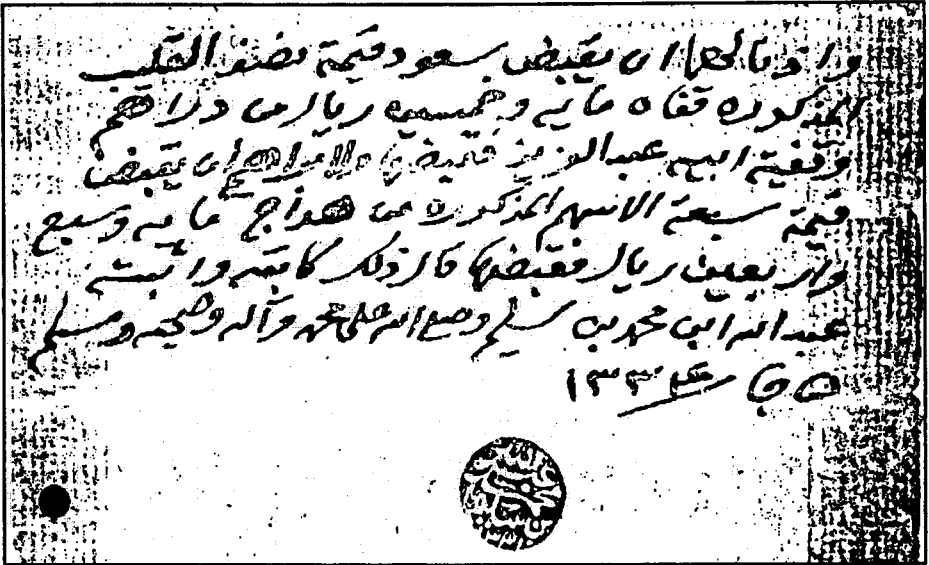 واذنا لها ان يقبض سعود قيمة نصف القليب
المذكوره قفاه مايه وخمسين ريال من دراهم
وقفية ابيه عبد العزيز فقبضها ولابراهيم ان يقبض
قيمة سبعة الاسهم المذكوره من هداج مايه وسبع
واربعين ريال فقبضها قال ذلك كاتبه واثبته
عبد الله ابن محمد بن سليم وصلى الله على محمد وآله وصحبه وسلم
جا ١٣٣٤